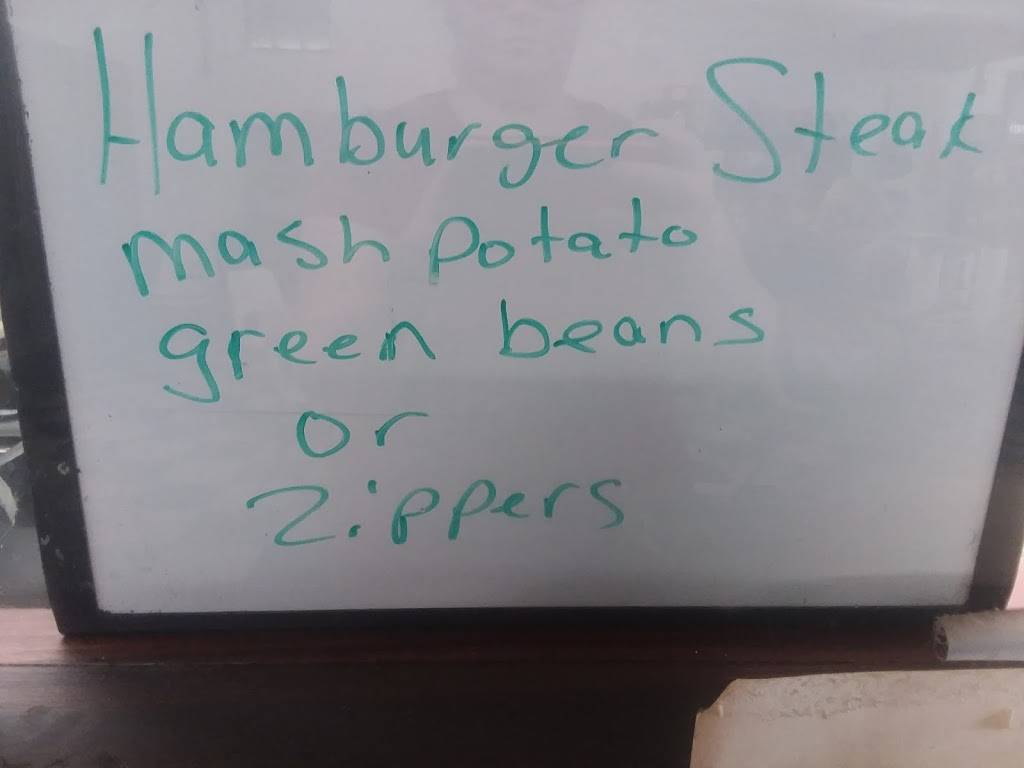 Hamburger Steak
mash potato
green beans
or
Zippers